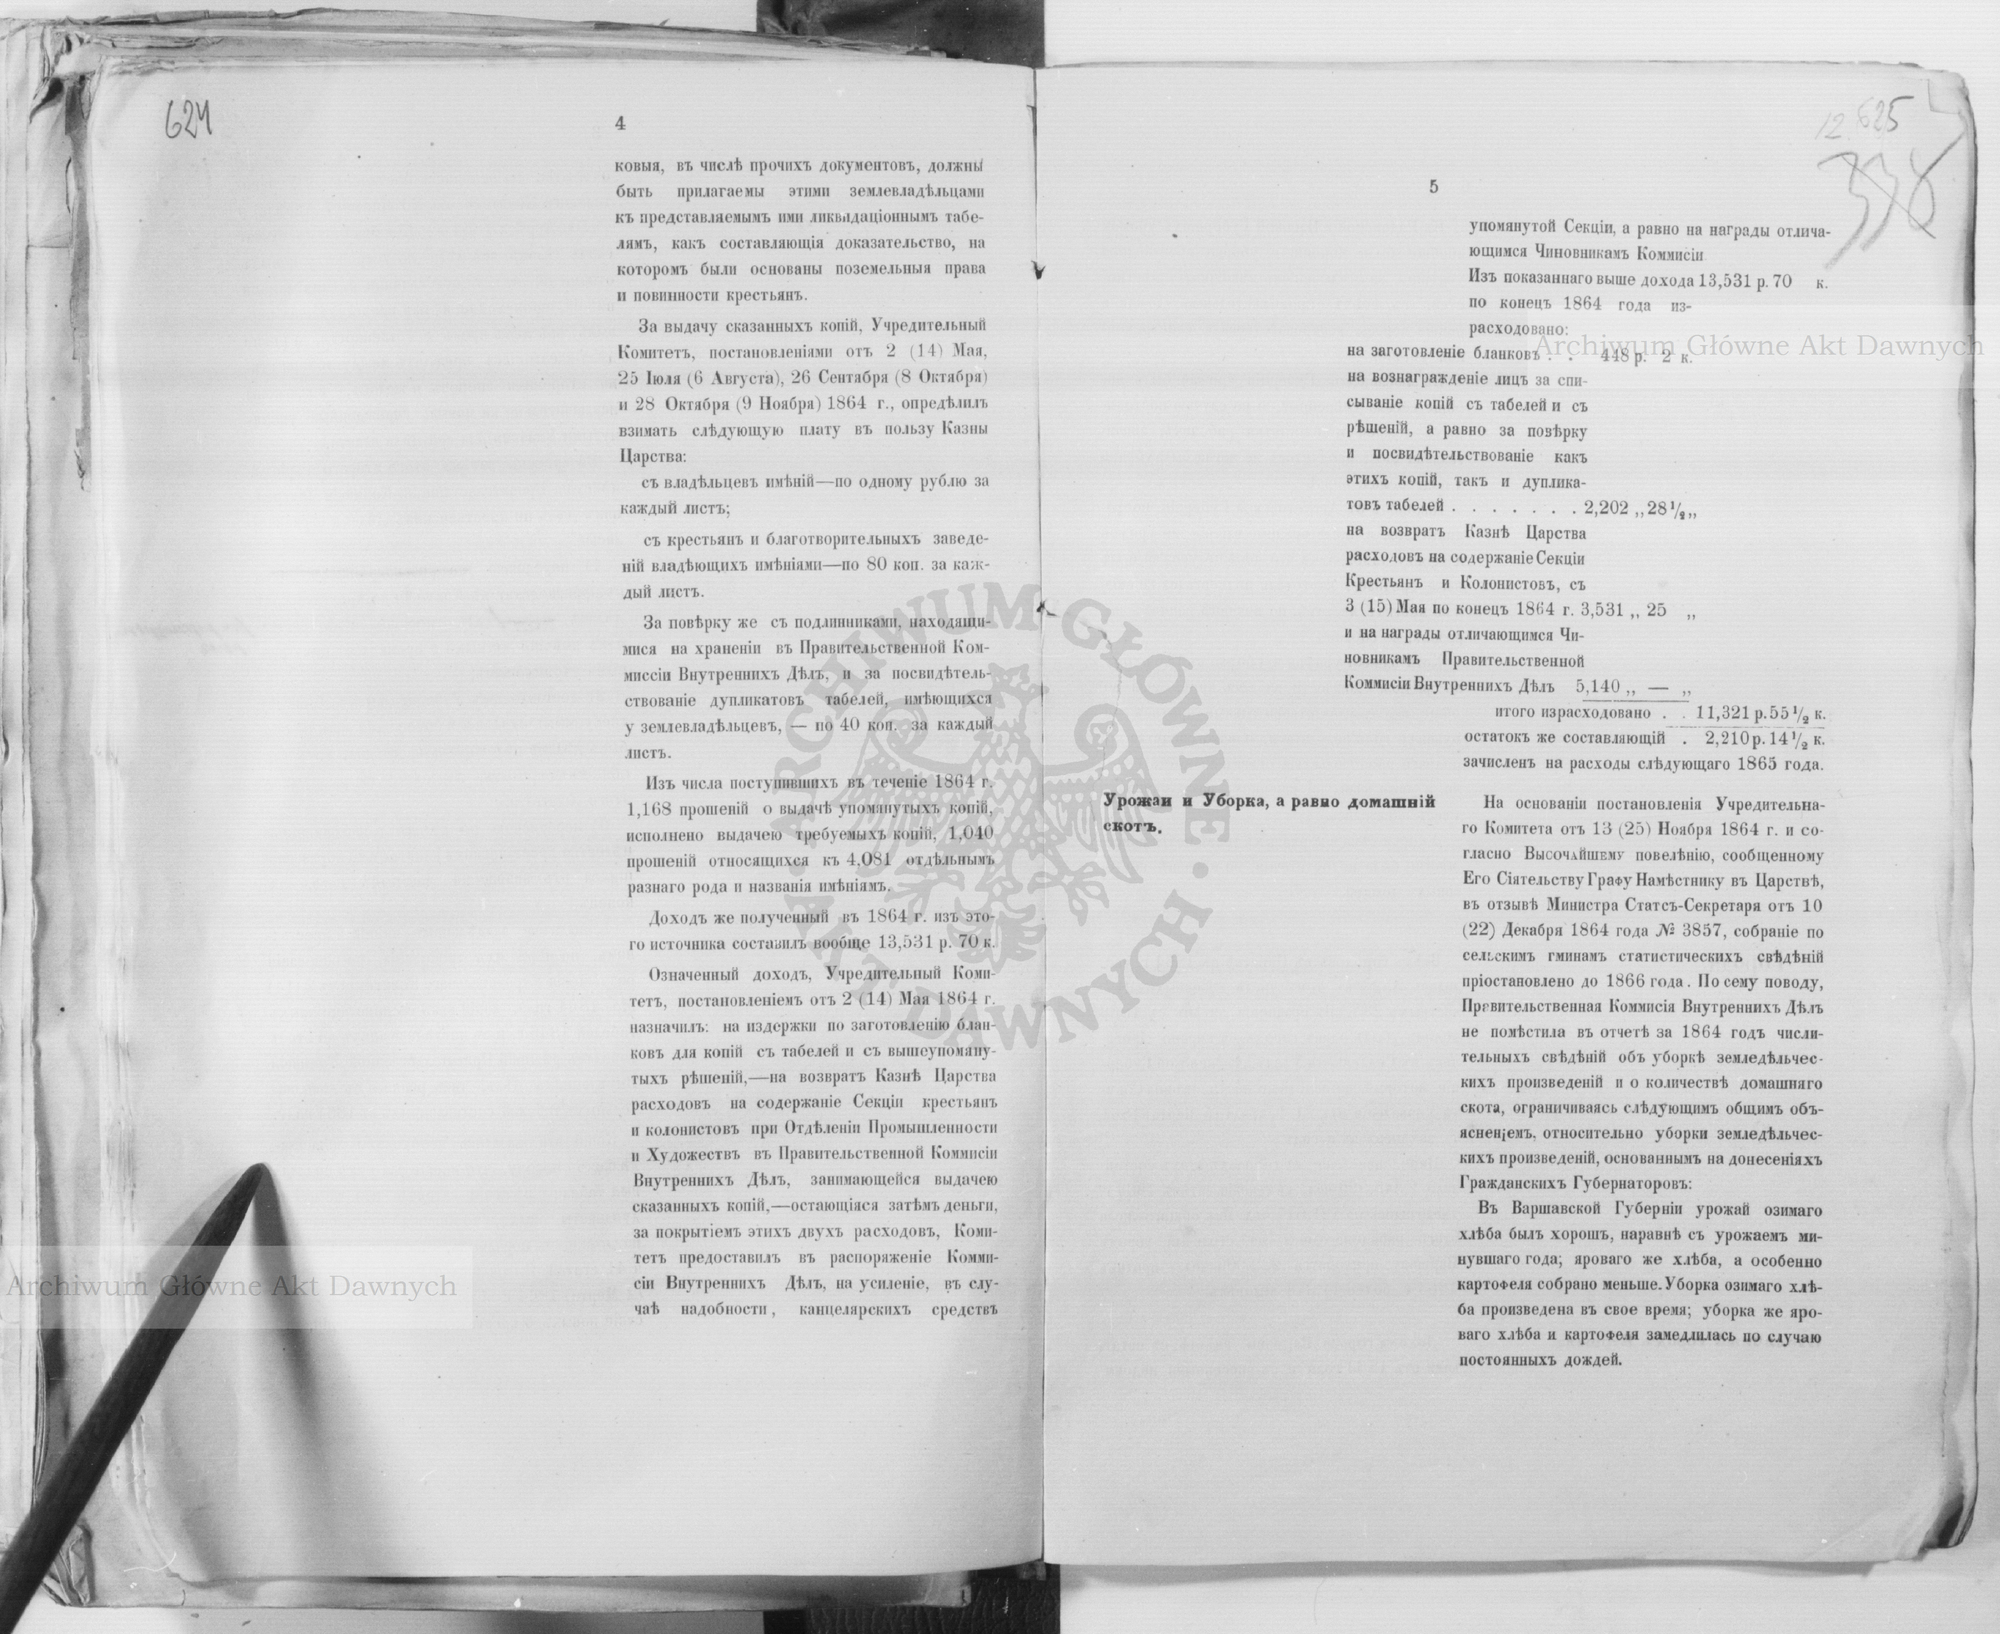 624
4
ковыя, въ числѣ прочихъ документовъ, должны
быть прилагаемы этими землевладѣльцами
къ представляемымъ ими ликвидаціоннымъ табе-
лямъ, какъ составляющія доказательство, на
которомъ были основаны поземельныя права
и повинности крестьянъ.
За выдачу сказанныхъ копій, Учредительный
Комитетъ, постановленіями отъ 2 (14) Мая,
25 Іюля (6 Августа), 26 Сентября (8 Октября)
и 28 Октября (9 Ноября) 1864 г., опредѣлилъ
взимать слѣдующую плату въ пользу Казны
Царства:
съ владѣльцевъ имѣній—по одному рублю за
каждый листъ;
съ крестьянъ и благотворительныхъ заведе-
ній владѣющихъ имѣніями—по 80 коп. за каж-
дый листъ.
За повѣрку же съ подлинниками, находящи-
мися на храненіи въ Правительственной Ком-
миссіи Внутреннихъ Дѣлъ, и за посвидѣтель-
ствованіе дупликатовъ табелей, имѣющихся
у землевладѣльцевъ, — по 40 коп. за каждый
листъ.
Изъ числа поступившихъ въ теченіе 1864 г.
1,168 прошеній о выдачѣ упомянутыхъ копій,
исполнено выдачею требуемыхъ копій, 1,040
прошеній относящихся къ 4,081 отдѣльнымъ
разнаго рода и названія имѣніямъ.
Доходъ же полученный въ 1864 г. изъ это-
го источника составилъ вообще 13,531 р. 70 к.
Означенный доходъ, Учредительный Коми-
тетъ, постановленіемъ отъ 2 (14) Мая 1864 г.
назначилъ: на издержки по заготовленію блан-
ковъ для копій съ табелей и съ вышеупомяну-
тыхъ рѣшеній,—на возвратъ Казнѣ Царства
расходовъ на содержаніе Секціи крестьянъ
и колонистовъ при Отдѣленіи Промышленности
и Художествъ въ Правительственной Коммисіи
Внутреннихъ Дѣлъ, занимающейся выдачею
сказанныхъ копій,—остающіяся затѣмъ деньги,
за покрытіемъ этихъ двухъ расходовъ, Коми-
тетъ предоставилъ въ распоряженіе Комми-
сіи Внутреннихъ Дѣлъ, на усиленіе, въ слу-
чаѣ надобности, канцелярскихъ средствъ
12 625
338
5
упомянутой Секціи, а равно на награды отлича-
ющимся Чиновникамъ Коммисіи
Изъ показаннаго выше дохода 13,531 р. 70 к.
по конецъ 1864 года из-
расходовано:
на заготовленіе бланковъ . . 448 р. 2 к.
на вознагражденіе лицъ за спи-
сываніе копій съ табелей и съ
рѣшеній, а равно за повѣрку
и посвидѣтельствованіе какъ
этихъ копій, такъ и дуплика-
товъ табелей . . . . . . . 2,202 „ 28 1/2 „
на возвратъ Казнѣ Царства
расходовъ на содержаніе Секціи
Крестьянъ и Колонистовъ, съ
3 (15) Мая по конецъ 1864 г. 3,531 „ 25 „
и на награды отличающимся Чи-
новникамъ Правительственной
Коммисіи Внутреннихъ Дѣлъ 5,140 „ — „
итого израсходовано . . 11,321 р. 55 1/2 к.
остатокъ же составляющій . 2,210 р. 14 1/2 к.
зачисленъ на расходы слѣдующаго 1865 года.
Урожаи и Уборка, а равно домашній
скотъ.
На основаніи постановленія Учредительна-
го Комитета отъ 13 (25) Ноября 1864 г. и со-
гласно Высочайшему повелѣнію, сообщенному
Его Сіятельству Графу Намѣстнику въ Царствѣ,
въ отзывѣ Министра Статсъ-Секретаря отъ 10
(22) Декабря 1864 года № 3857, собраніе по
сельскимъ гминамъ статистическихъ свѣдѣній
пріостановлено до 1866 года. По сему поводу,
Правительственная Коммисія Внутреннихъ Дѣлъ
не помѣстила въ отчетѣ за 1864 годъ числи-
тельныхъ свѣдѣній объ уборкѣ земледѣльчес-
кихъ произведеній и о количествѣ домашняго
скота, ограничиваясь слѣдующимъ общимъ объ-
ясненіемъ, относительно уборки земледѣльчес-
кихъ произведеній, основаннымъ на донесеніяхъ
Гражданскихъ Губернаторовъ:
Въ Варшавской Губерніи урожай озимаго
хлѣба былъ хорошъ, наравнѣ съ урожаемъ ми-
нувшаго года; яроваго же хлѣба, а особенно
картофеля собрано меньше. Уборка озимаго хлѣ-
ба произведена въ свое время; уборка же яро-
ваго хлѣба и картофеля замедлилась по случаю
постоянныхъ дождей.
Archiwum Główne Akt Dawnych
Archiwum Główne Akt Dawnych
ARCHIWUM GŁÓWNE · AKT DAWNYCH ·